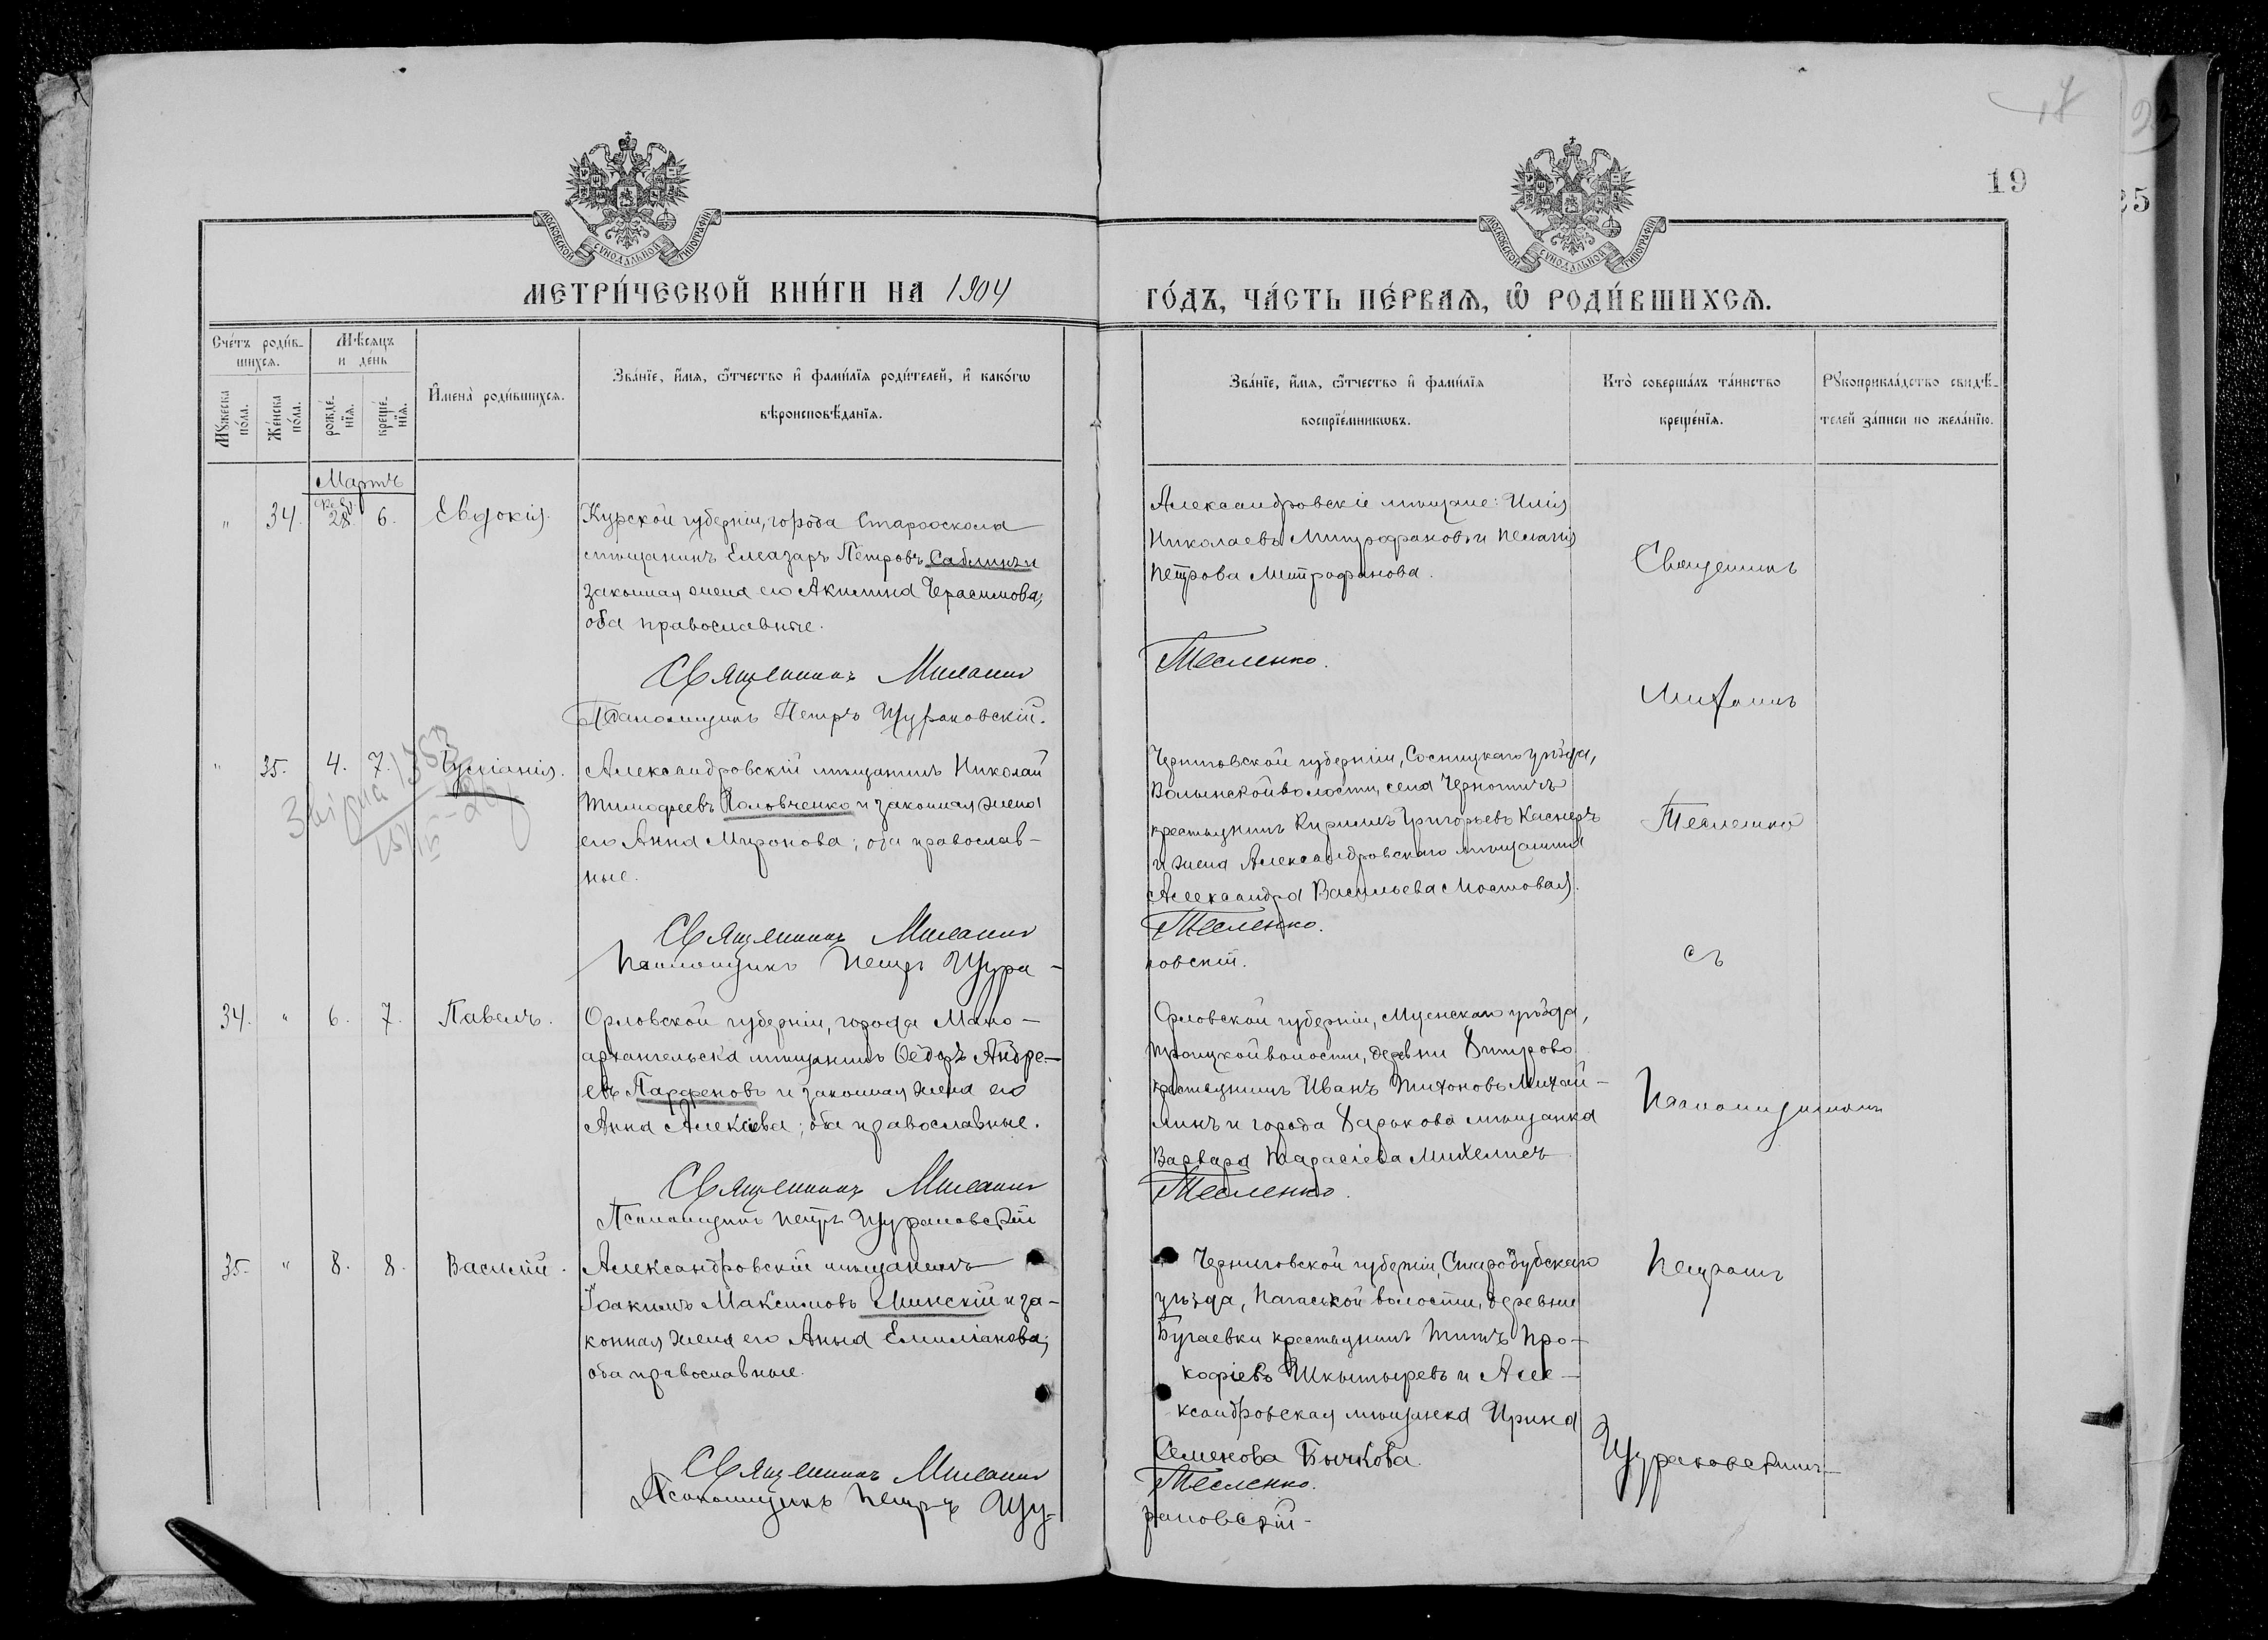 19
МОСКОВСКОЙ СУНОДАЛЬНОЙ ТИПОГРАФІИ
МОСКОВСКОЙ СУНОДАЛЬНОЙ ТИПОГРАФІИ
МЕТРИ́ЧЕСКОЙ КНИ́ГИ НА 1904
ГО́ДЪ, ЧА́СТЬ ПЕ́РВАѦ, Ѽ РОДИ́ВШИХСѦ.
Сче́тъ роди́в-
шихсѧ.
Мꙋ́жеска по́ла.
Же́нска по́ла.
Мѣ́сяцъ
и де́нь
рожде́-
нїѧ.
креще́-
нїѧ.
И҆мена̀ роди́вшихсѧ.
Зва́нїе, и҆́мѧ, ѻ҆́тчество и҆ фами́лїѧ роди́телей, и҆ како́гѡ
вѣроисповѣ́данїѧ.
Зва́нїе, и҆́мѧ, ѻ҆́тчество и҆ фами́лїѧ
воспрїе́мникѡвъ.
Кто̀ соверша́лъ та́инство
креще́нїѧ.
Рꙋкоприкла́дство свидѣ́-
телей за́писи по жела́нїю.
Мартъ
" 34. 28. 6. Евдокія.
Курской губерніи, города Старооскола
мѣщанинъ Елеазаръ Петровъ Саблинъ и
законная жена его Акилина Герасимова;
оба православные.
Священникъ Михаилъ
Тесленко.
Псаломщикъ Петръ Щураковскій.
Александровскіе мѣщане: Илія
Николаевъ Митрофановъ и Пелагія
Петрова Митрофанова.
" 35. 4. 7. Іустіанія.
Александровскій мѣщанинъ Николай
Тимофеевъ Половченко и законная жена
его Анна Миронова; оба православ-
ные.
Священникъ Михаилъ
Тесленко.
Псаломщикъ Петръ Щура-
ковскій.
Черниговской губерніи, Сосницкаго уѣзда,
Волынской волости, села Чернотичъ
крестьянинъ Кириллъ Григорьевъ Каснеръ
и жена Александровскаго мѣщанина
Александра Васильева Мостовая.
34. " 6. 7. Павелъ.
Орловской губерніи, города Мало-
архангельска мѣщанинъ Ѳедоръ Андре-
евъ Парфеновъ и законная жена его
Анна Алексѣева; оба православные.
Священникъ Михаилъ
Тесленко.
Псаломщикъ Петръ Щураковскій
Орловской губерніи, Мценскаго уѣзда,
Троицкой волости, деревни Дмитрово
крестьянинъ Иванъ Тихоновъ Михай-
линъ и города Харькова мѣщанка
Варвара Тарасіева Михелисъ
35. " 8. 8. Василій.
Александровскій мѣщанинъ
Іоакимъ Максимовъ Минскій и за-
конная жена его Анна Емиліанова;
оба православные.
Священникъ Михаилъ
Тесленко.
Псаломщикъ Петръ Щу-
раковскій
Черниговской губерніи, Стародубскаго
уѣзда, волости, деревни
Бугаевки крестьянинъ Титъ Про-
кофіевъ и Але-
ксандровская мѣщанка Ирина
Семенова Бычкова.
Священникъ
Михаилъ
Тесленко
съ
Псаломщикомъ
Петромъ
Щураковскимъ